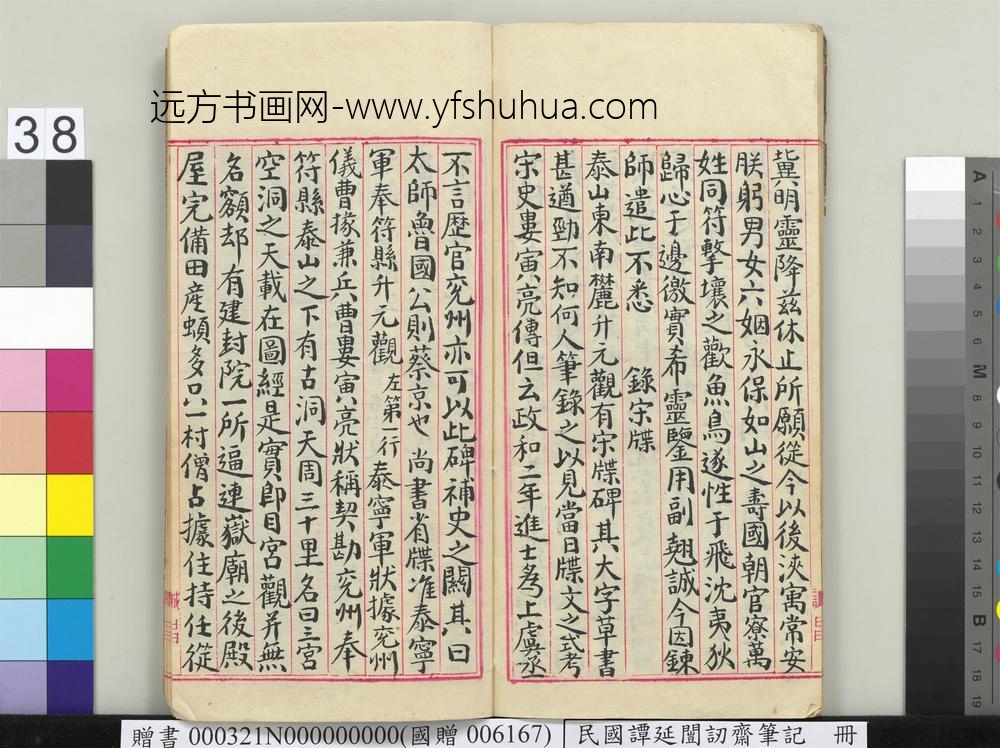 远方书画网-www.yfshuhua.com
38
冀明靈降茲休止所願從今以後浹寓常安
朕躬男女六姻永保如山之壽國朝官寮萬
姓同符擊壤之歡魚鳥遂性于飛沈夷狄
歸心于邊徼實希靈鑒用副翹誠今因鍊
師遣此不悉 錄宋牒
泰山東南麓升元觀有宋牒碑其大字草書
甚遒勁不知何人筆錄之以見當日牒文之式考
宋史婁寅亮傳但云政和二年進士為上虞丞
不言歷官兗州亦可以此碑補史之闕其曰
太師魯國公則蔡京也 尚書省牒准泰寧
軍奉符縣升元觀 左第一行 泰寧軍狀據兗州
儀曹掾兼兵曹婁寅亮狀稱契勘兗州奉
符縣泰山之下有古洞天周三十里名曰三宮
空洞之天載在圖經是實即目宮觀并無
名額却有建封院一所逼連嶽廟之後殿
屋完備田產蝢多只一村僧占據住持任從
A 1 2 3 4 5 6 M 8 9 10 11 12 13 14 15 B 17 18 19
贈書 000321N000000000(國贈 006167)
民國譚延闓訒齋筆記 冊